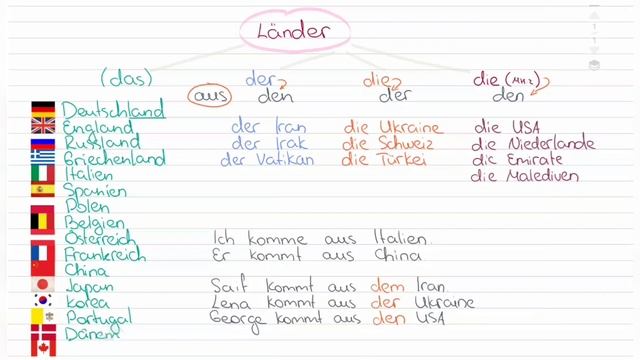 Länder
(das) der die die (мнч)
aus den der den
Deutschland
England der Iran die Ukraine die USA
Russland der Irak die Schweiz die Niederlande
Griechenland der Vatikan die Türkei die Emirate
Italien die Malediven
Spanien
Polen
Belgien
Österreich Ich komme aus Italien.
Frankreich Er kommt aus China
China
Japan Saif kommt aus dem Iran.
Korea Lena kommt aus der Ukraine
Portugal George kommt aus den USA
Dänem